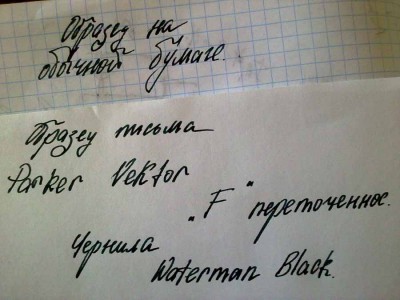 Образец на
обычной бумаге.
Образец письма
Parker Vektor
„F" переточенное.
Чернила
Waterman Black.